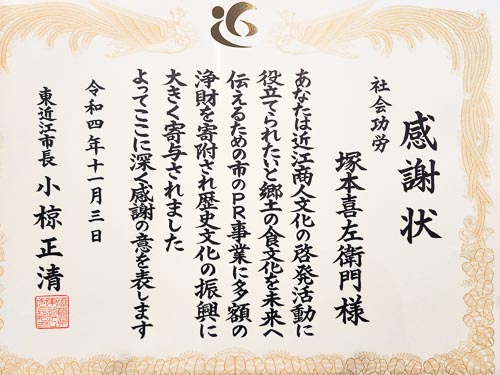 感謝状
社会功労
塚本喜左衛門様
あなたは近江商人文化の啓発活動に
役立てられたいと郷土の食文化を未来へ
伝えるための市のPR事業に多額の
浄財を寄附され歴史文化の振興に
大きく寄与されました
よってここに深く感謝の意を表します
令和四年十一月三日
東近江市長 小椋正清